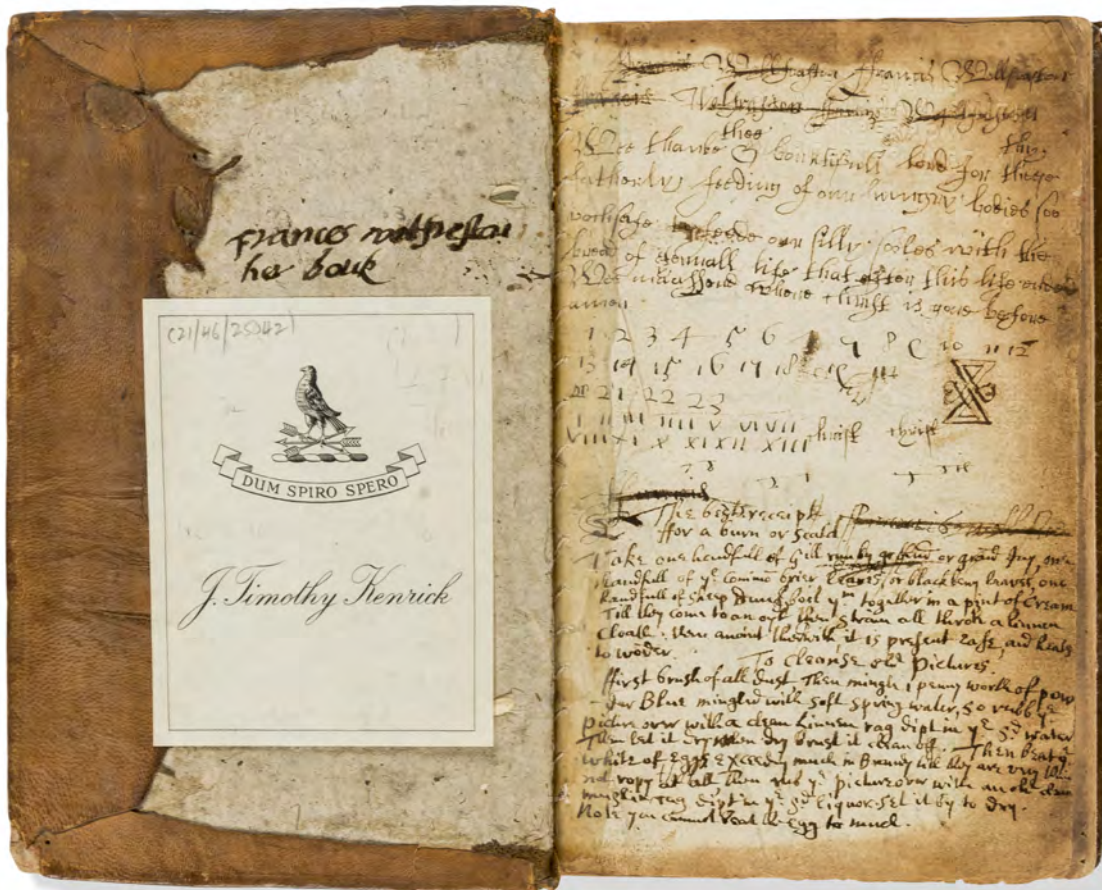 francis wolfreston
her bouk
(21/46/25042)
DUM SPIRO SPERO
J. Timothy Kenrick
ffrancis Wollfreston
thee thy
Wee thanke O bountifull lord for these
fatherly feeding of our hungry bodies soe
vochsafe to feede our silly soles with the
bread of eternall life that after this life ended
Wee may assend where Christ is gone before
amen
1 2 3 4 5 6 7 8 9 10 11 12
13 14 15 16 17 18
21 22 23
I II III IIII V VI VII Christ Christ
VIII XI X XI XII XIII
The best receipt
ffor a burn or scald
Take one handfull of Gill run by ground or ground Ivy, one
handfull of ye common brier leaves, or blackbery leaves, one
handfull of sheep dung, boyl ym together in a pint of Cream
Till they come to an oyl then strain all throw a linnen
cloath. then anoint therwith it is present ease, and heals
to woder.
To Cleanse old Pictures
ffirst brush of all dust Then mingle 1 penny worth of pow
der Blue mingled with soft spring water, so rubb ye
picture over with a clean linnen rag dipt in ye sd water
Then let it dry when dry brush it clean off. Then beat ye
white of Eggs exceeding much in Brandy till they are very thin
not ropy at all Then rub ye picture over with an old clean
muslin rag dipt in ye sd liquor set it by to dry.
Note you cannot beat the egg to much.